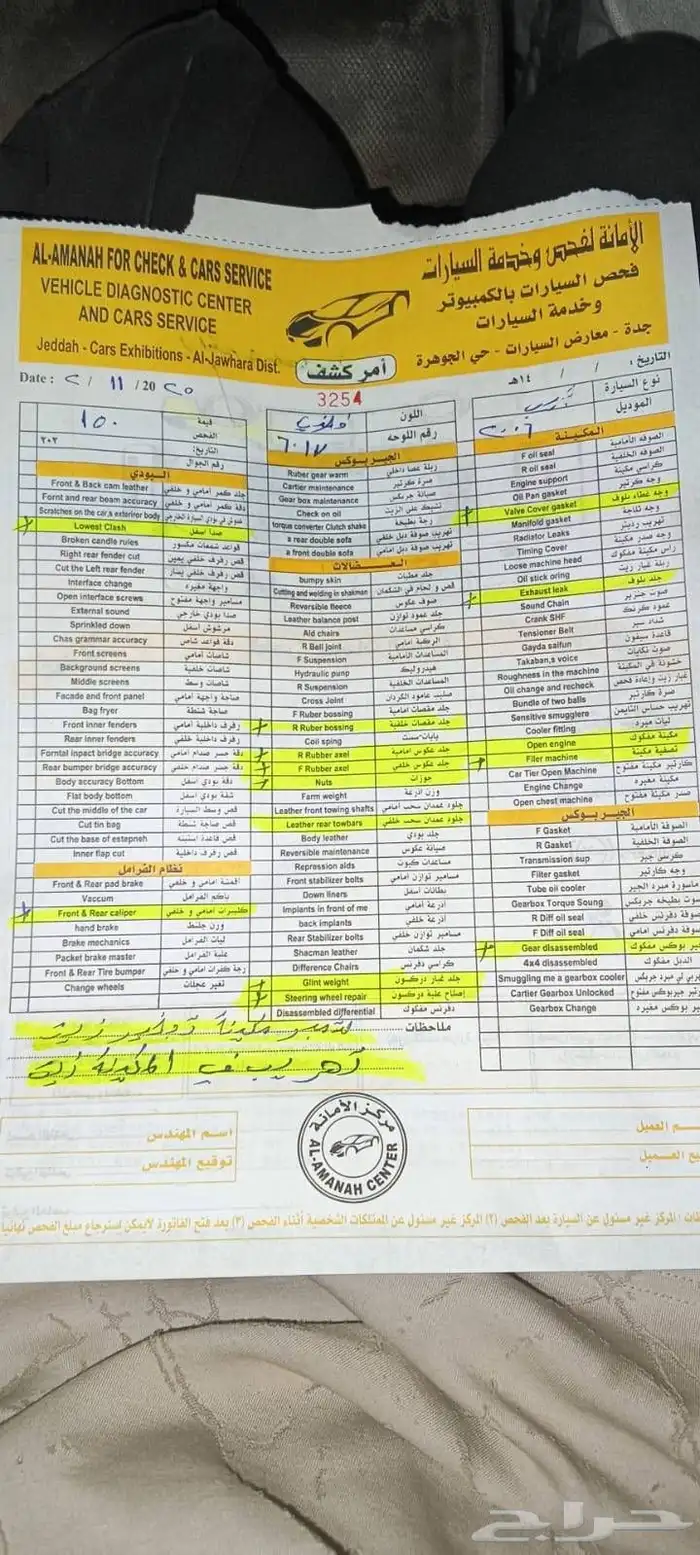 AL-AMANAH FOR CHECK & CARS SERVICE
VEHICLE DIAGNOSTIC CENTER
AND CARS SERVICE
Jeddah - Cars Exhibitions - Al-Jawhara Dist.
الأمانة لفحص وخدمة السيارات
فحص السيارات بالكمبيوتر
وخدمة السيارات
جدة - معارض السيارات - حي الجوهرة
أمر كشف
3254
Date : ٢ / 11 / 20 ٢٠
التاريخ : / / ١٤هـ
نوع السيارة
الموديل ٢٠٠٦
اللون
رقم اللوحه ٦٠١٧
قيمة الفحص ١٥٠
التاريخ: ٢٠٢
رقم الجوال
البودي
Front & Back cam leather جلد كمر امامي و خلفي
Fornt and rear beam accuracy دقة كمر امامي و خلفي
Scratches on the car,s exterior body
Lowest Clash صدا اسفل
Broken candle rules قواعد شمعات مكسور
Right rear fender cut قص رفرف خلفي يمين
Cut the Left rear fender قص رفرف خلفي يسار
Interface change واجهة مغيره
Open interface screws مسامير واجهة مفتوح
External sound صدا بودي خارجي
Sprinkled down مرشوش اسفل
Chas grammar accuracy دقة قواعد شاص
Front screens شاصات امامي
Background screens شاصات خلفية
Middle screens شاصات وسط
Facade and front panel صاجة واجهة امامي
Bag fryer صاجة شنطة
Front inner fenders رفرف داخلية امامي
Rear inner fenders رفرف داخلية خلفي
Forntal inpact bridge accuracy دقة جسر صدام امامي
Rear bumper bridge accuracy دقة جسر صدام خلفي
Body accuracy Bottom دقة بودي اسفل
Flat body bottom
Cut the middle of the car قص وسط السيارة
Cut tin bag قص صاجة شنطة
Cut the base of estepneh قص قاعدة استبنه
Inner flap cut قص رفرف داخلية
نظام الفرامل
Front & Rear pad brake اقمشة امامي و خلفي
Vaccum باكم الفرامل
Front & Rear caliper كليبرات امامي و خلفي
hand brake وزن جلنط
Brake mechanics ليات الفرامل
Packet brake master علبة الفرامل
Front & Rear Tire bumper رجة كفرات امامي و خلفي
Change wheels تغير عجلات
الجير بوكس
Ruber gear warm ربلة عصا داخلي
Cartier maintenance صرة كرتير
Gear box maintenance صيانة جربكس
Check on oil تشيك على الزيت
torque converter Clutch shake رجة بطيخة
a rear double sofa تهريب صوفة دبل خلفي
a front double sofa تهريب صوفة دبل امامي
العضلات
bumpy skin جلد مطبات
Cutting and welding in shakman قص و لحام في الشكمان
Reversible fleece صوف عكوس
Leather balance post جلد عمود توازن
Ald chairs كراسي مساعدات
R Bell joint الركبة امامي
F Suspension المساعدات الامامية
Hydraulic punp هيدروليك
R Suspension المساعدات الخلفية
Cross Joint صليب عامود الكردان
F Ruber bossing جلد مقصات امامية
R Ruber bossing جلد مقصات خلفية
Coil sping يايات-ست
R Rubber axel جلد عكوس امامية
F Rubber axel جلد عكوس خلفي
Nuts جوزات
Farm weight وزن اذرعة
Leather front towing shafts جلود عمدان سحب امامي
Leather rear towbars جلود عمدان سحب خلفي
Body leather جلد بودي
Reversible maintenance صيانة عكوس
Repression aids مساعدات كبوت
Front stabilizer bolts مسامير توازن امامي
Down liners بطانات اسفل
Implants in front of me أذرعة امامي
back implants أذرعة خلفي
Rear Stabilizer bolts مسامير توازن خلفي
Shacman leather جلد شكمان
Difference Chairs كراسي دفرنس
Glint weight جلد غبار دركسون
Steering wheel repair إصلاح علبة دركسون
Disassembled differential دفرنس مفكوك
المكينة
F oil seal الصوفه الأمامية
R oil seal الصوفه الخلفية
Engine support كراسي مكينة
Oil Pan gasket وجه كرتير
Valve Cover gasket وجه غطاء بلوف
Manifold gasket وجه ثلاجة
Radiator Leaks تهريب رديتر
Timing Cover وجه صدر مكينة
Loose machine head راس مكينة مفكوك
Oil stick oring ربلة عيار زيت
Exhaust leak جلد بلوف
Sound Chain صوت جنزير
Crank SHF عمود كرنك
Tensioner Belt شداد سير
Gayda saifun قاعدة سيفون
Takaban,s voice صوت تكايات
Roughness in the machine خشونة في المكينة
Oil change and recheck غيار زيت وإعادة فحص
Bundle of two balls صرة كارتير
Sensitive smugglere تهريب حساس التايمن
Cooler fitting ليات مبرد
Open engine مكينة مفكوك
Filer machine تصفية مكينة
Car Tier Open Machine كارتير مكينة مفتوح
Engine Change مكينة مغيره
Open chest machine صدر مكينة مفتوح
الجير بوكس
F Gasket الصوفة الأمامية
R Gasket الصوفة الخلفية
Transmission sup كرسي جير
Filter gasket وجه كارتير
Tube oil cooler ماسورة مبرد الجير
Gearbox Torque Soung صوت بطيخه جربكس
R Diff oil seal صوفة دفرنس خلفي
F Diff oil seal صوفة دفرنس امامي
Gear disassembled جير بوكس مفكوك
4x4 disassembled الدبل مفكوك
Smuggling me a gearbox cooler
Cartier Gearbox Unlocked
Gearbox Change جير بوكس مغيره
ملاحظات
تهريب في المكينة زيت
اسم المهندس
توقيع المهندس
مركز الأمانة
AL-AMANAH CENTER
م العميل
يع العميل
المركز غير مسئول عن السيارة بعد الفحص (٢) المركز غير مسئول عن الممتلكات الشخصية أثناء الفحص (٣) بعد فتح الفاتورة لايمكن استرجاع مبلغ الفحص نهائيا
حراج